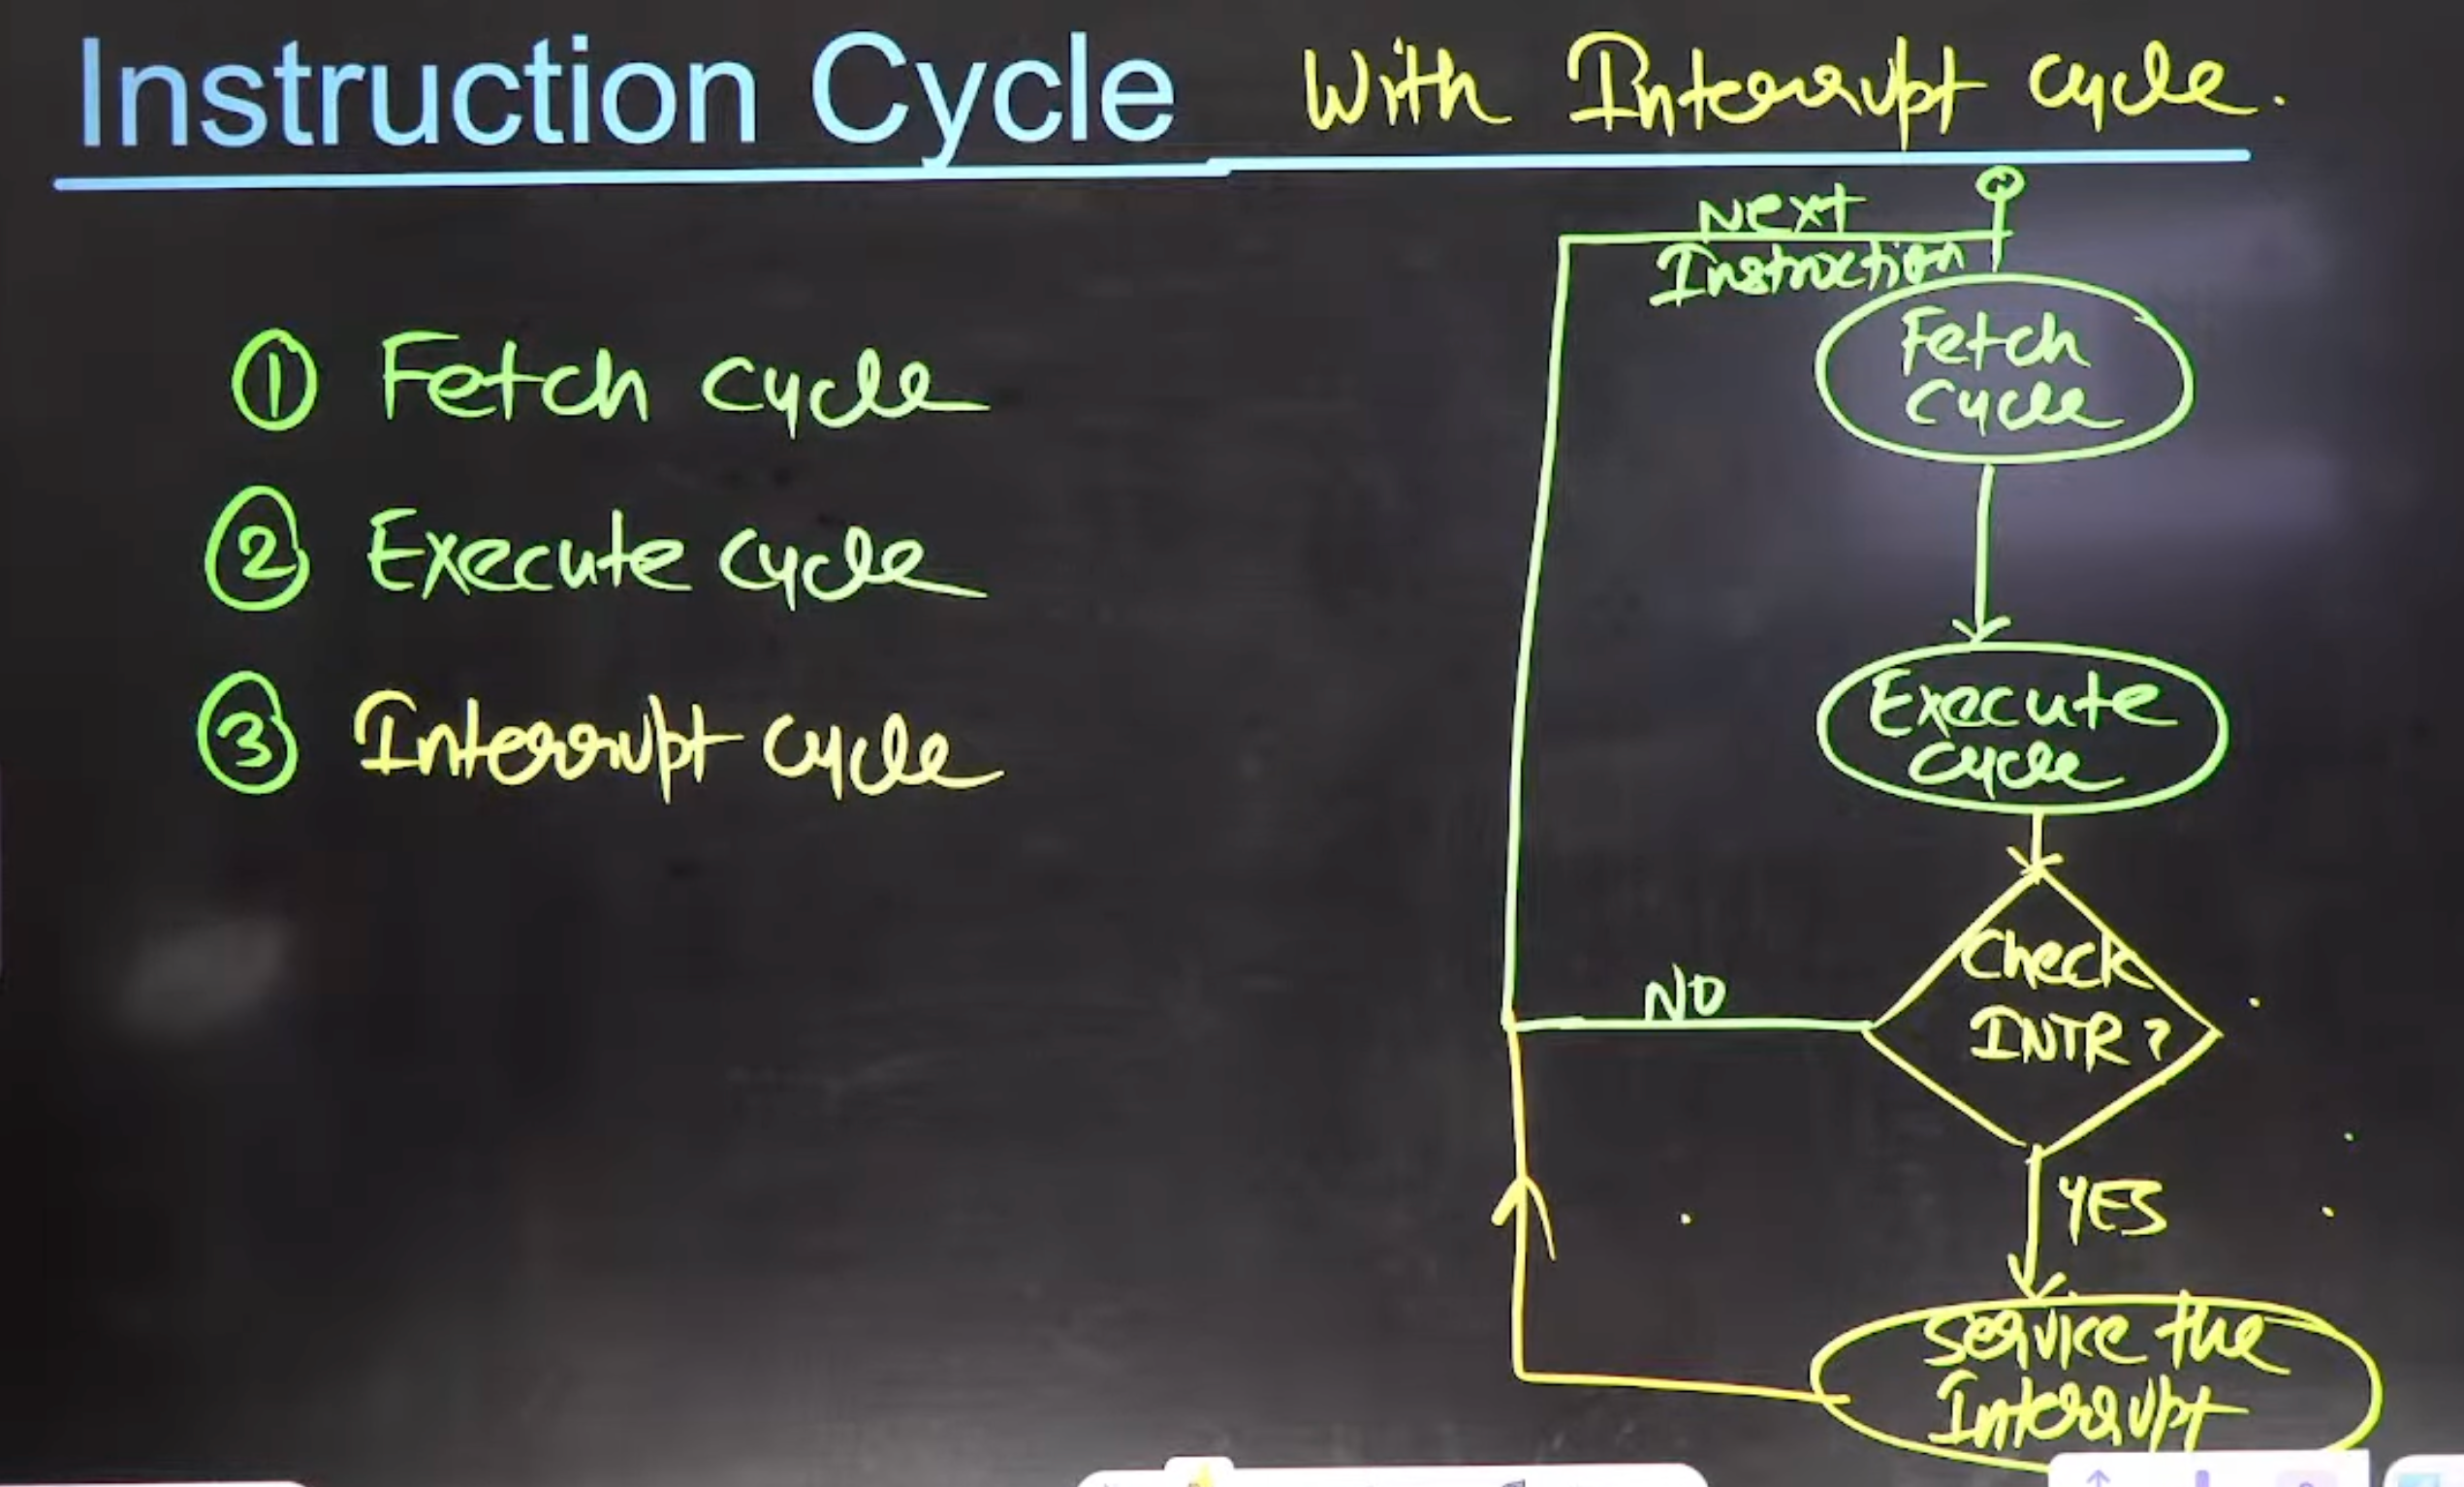 Instruction Cycle With Interrupt cycle.
① Fetch cycle
② Execute cycle
③ Interrupt cycle
Next
Instruction
Fetch
cycle
Execute
cycle
Check
INTR?
NO
YES
Service the
Interrupt